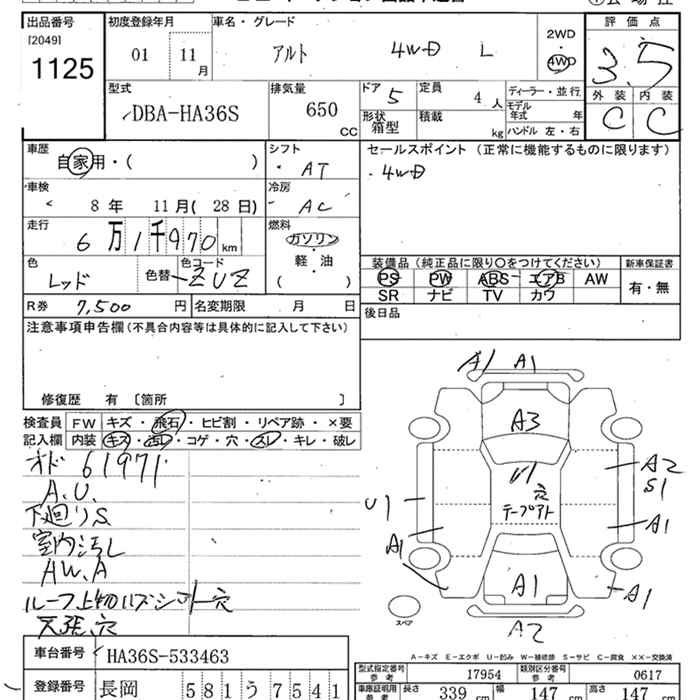 出品番号
[2049]
1125
初度登録年月
01 11月
車名・グレード
アルト 4WD L
2WD
4WD
評価点
3.5
外装 内装
C C
型式
DBA-HA36S
排気量
650 CC
ドア 5
定員 4 人
形状 箱型
積載 kg
ディーラー・並行
モデル年式 年
ハンドル 左・右
車歴
自家用・( )
シフト
AT
セールスポイント (正常に機能するものに限ります)
・4WD
車検
8年 11月(28日)
冷房
AC
走行
6万1千970km
燃料
ガソリン
軽・油
( )
色
レッド
色替
色コード
ZUZ
装備品(純正品に限り○をつけてください)
PS PW ABS エアB AW
SR ナビ TV カワ
新車保証書
有・無
R券 7,500円
名変期限 月 日
後日品
注意事項申告欄(不具合内容等は具体的に記入して下さい)
修復歴 有 〔箇所 〕
検査員記入欄
FW キズ・飛石・ヒビ割・リペア跡・×要
内装 キズ・汚レ・コゲ・穴・スレ・キレ・破レ
オド 61971
A.U.
下廻りS
室内汚レ
AW.A
天張穴
A1 A1
A3
U1
穴
テープアト
A2
S1
U1
A1
A1
A1
A1
A2
スペア
A−キズ E−エクボ U−凹み W−補修跡 S−サビ C−腐食 XX−交換済
車台番号 HA36S-533463
登録番号 長岡 581う7541
型式指定番号 参考 17954
類別区分番号 参考 0617
車庫証明用 参考 長さ 339 cm 幅 147 cm 高さ 147 cm